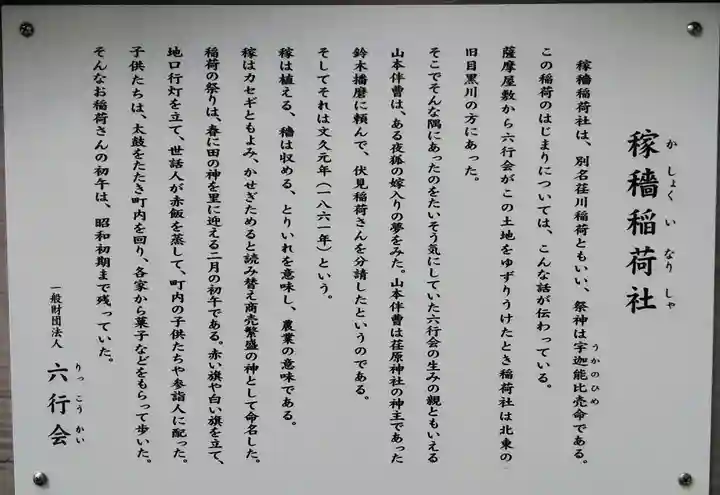 稼穡稲荷社
か しょく い なり しゃ
稼穡稲荷社は、別名荏川稲荷ともいい、祭神は宇迦能比売命である。
うかのひめ
この稲荷のはじまりについては、こんな話が伝わっている。
薩摩屋敷から六行会がこの土地をゆずりうけたとき稲荷社は北東の
旧目黒川の方にあった。
そこでそんな隅にあったのをたいそう気にしていた六行会の生みの親ともいえる
山本伴曹は、ある夜狐の嫁入りの夢をみた。山本伴曹は荏原神社の神主であった
鈴木播磨に頼んで、伏見稲荷さんを分請したというのである。
そしてそれは文久元年(一八六一年)という。
稼は植える、穡は収める、とりいれを意味し、農業の意味である。
稼はカセギともよみ、かせぎためると読み替え商売繁盛の神として命名した。
稲荷の祭りは、春に田の神を里に迎える二月の初午である。赤い旗や白い旗を立て、
地口行灯を立て、世話人が赤飯を蒸して、町内の子供たちや参詣人に配った。
子供たちは、太鼓をたたき町内を回り、各家から菓子などをもらって歩いた。
そんなお稲荷さんの初午は、昭和初期まで残っていた。
一般財団法人 六行会
りっ こう かい